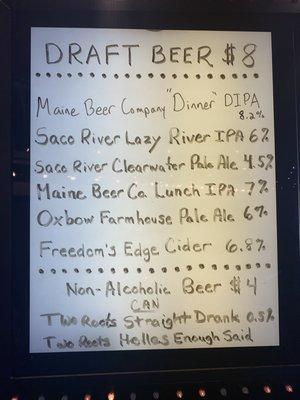 DRAFT BEER $8
Maine Beer Company "Dinner" DIPA
8.2%
Saco River Lazy River IPA 6%
Saco River Clearwater Pale Ale 4.5%
Maine Beer Co. Lunch IPA 7%
Oxbow Farmhouse Pale Ale 6%
Freedom's Edge Cider 6.8%
Non-Alcoholic Beer $4
CAN
Two Roots Straight Drank 0.5%
Two Roots Helles Enough Said